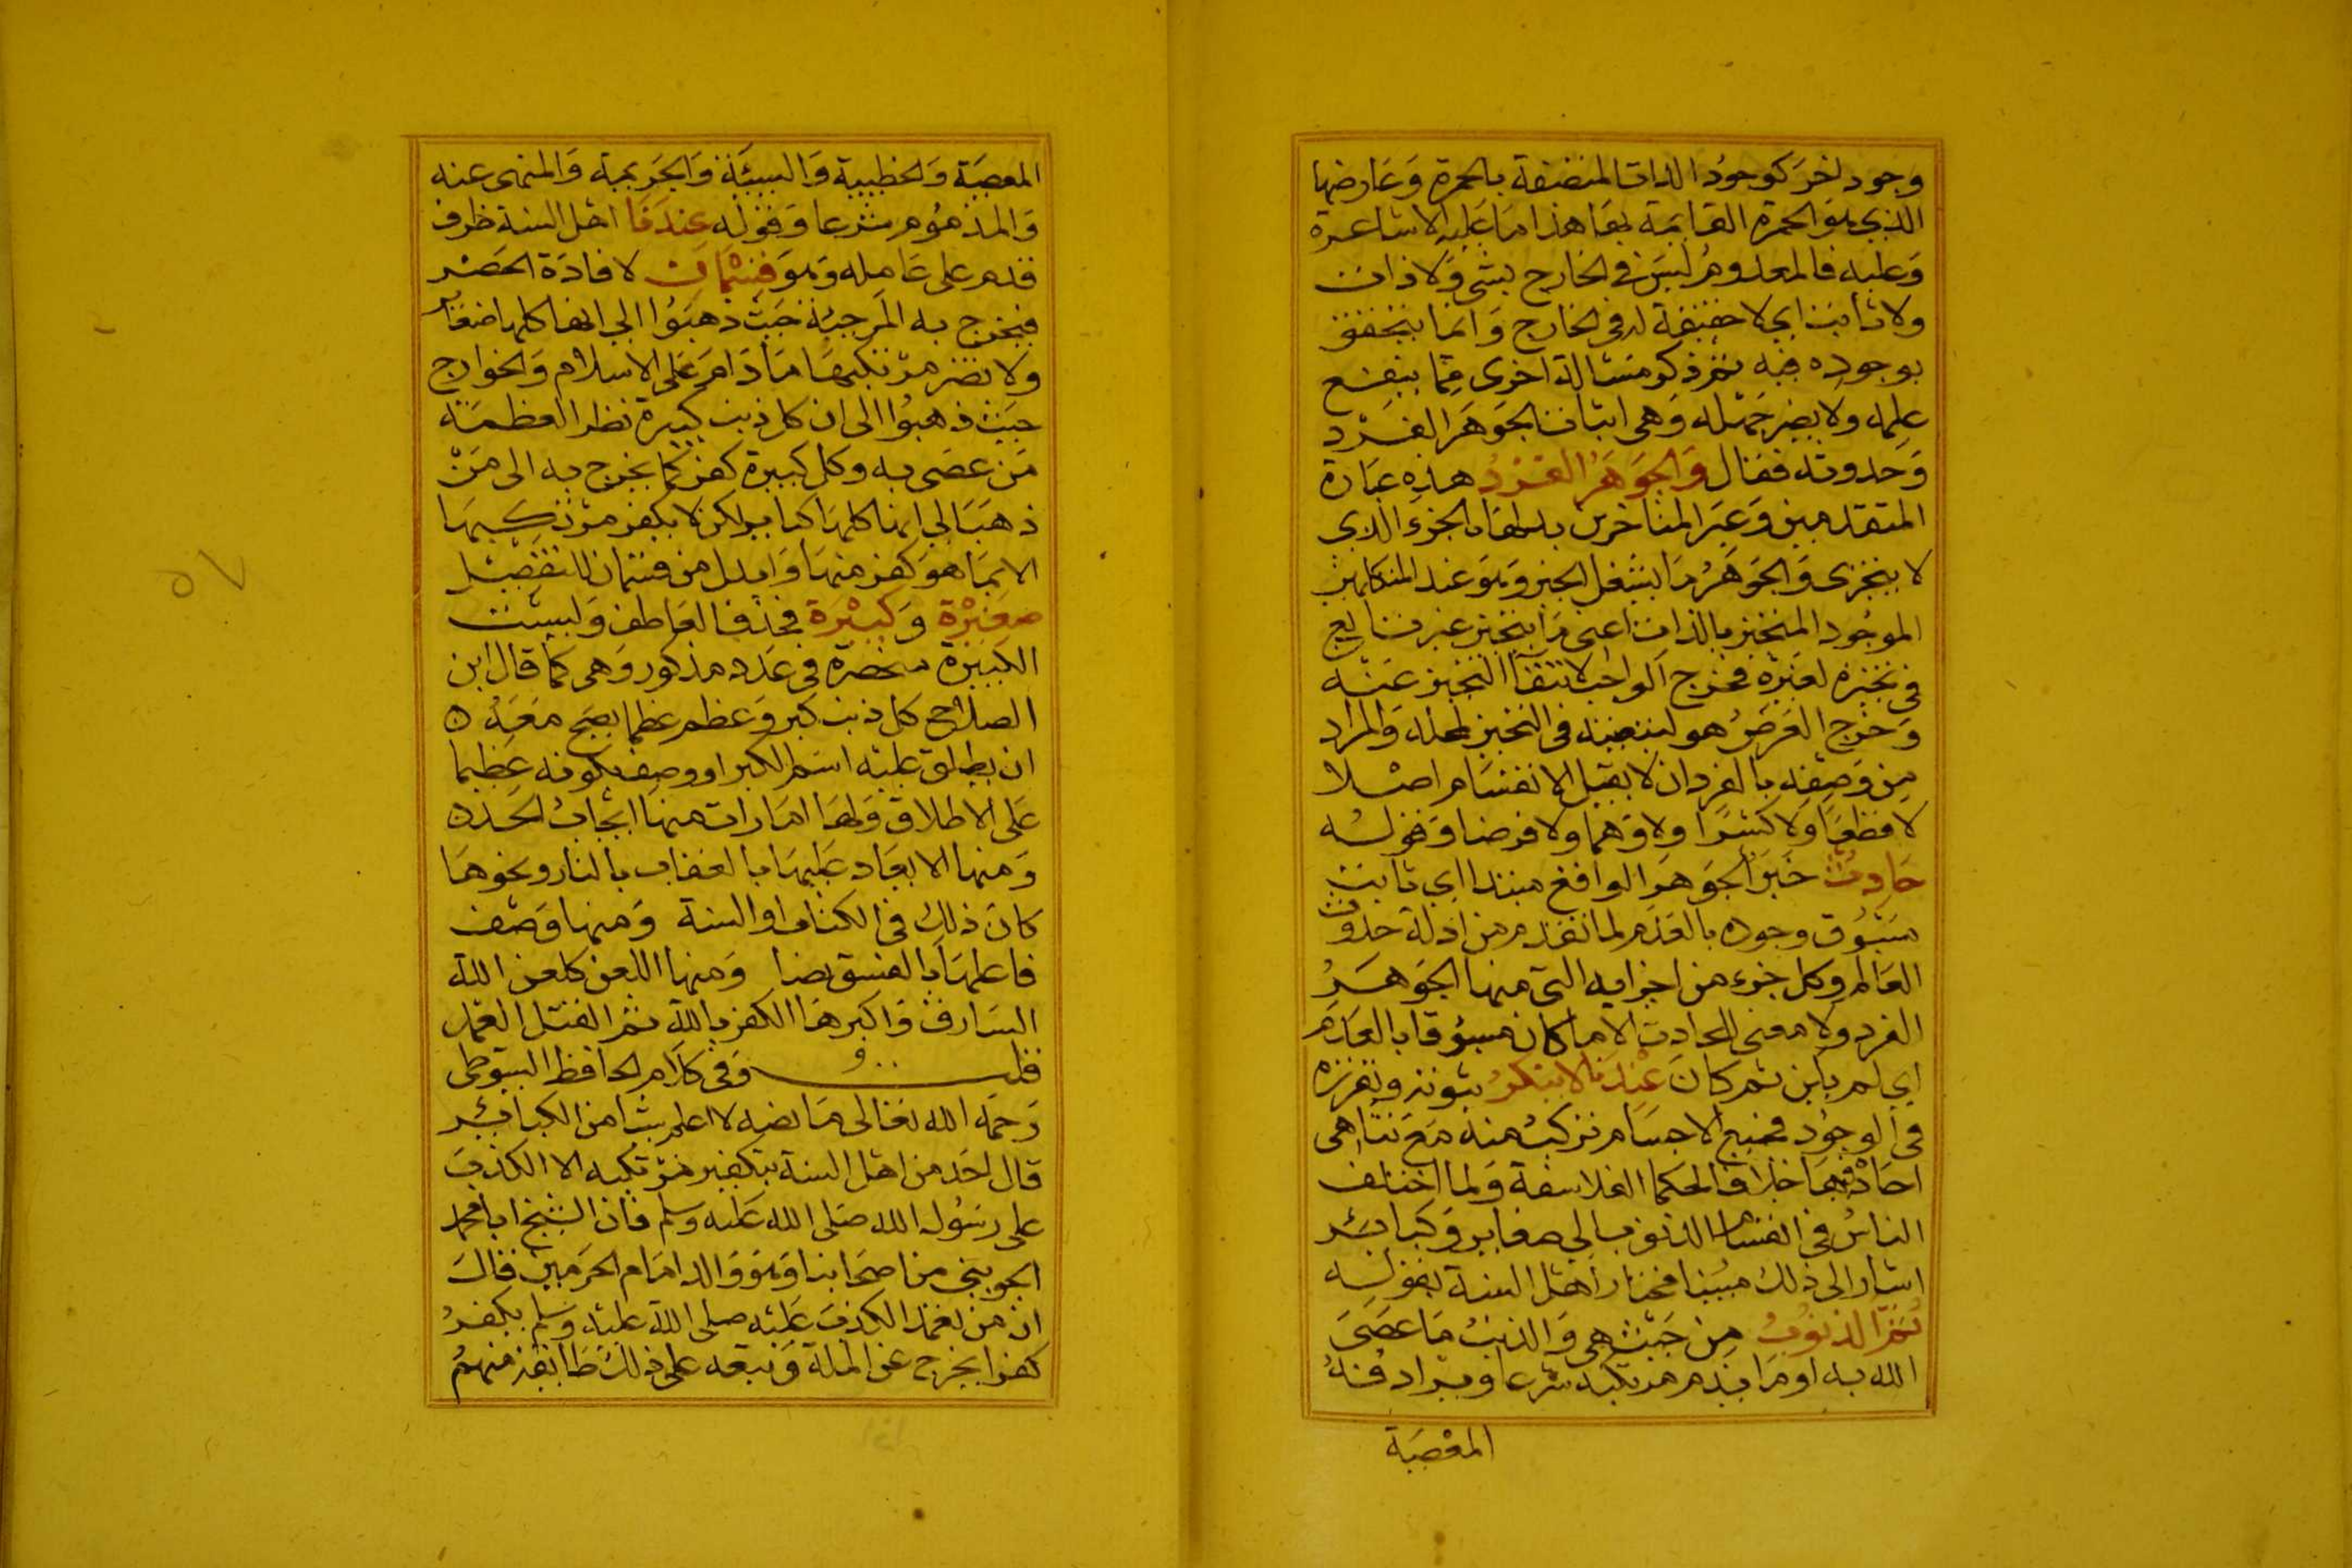 وجود اخر كوجود الذات المتصفة بالحمرة وعارضها
الذي هو الحمرة القايمة بها هذا ما عليه الاشاعرة
وعليه فالمعدوم ليس في الخارج بشي ولا ذات
ولا ثابت اي لا حقيقة له في الخارج وانما يتحقق
بوجوده فيه ثم ذكر مسالة اخرى مما ينفع
علمه ولا يضر جهله وهي اثبات الجوهر الفرد
وحدوثه فقال والجوهر الفرد هذه عبارة
المتقدمين وعبر المتاخرين بدلها بالجزء الذي
لا يتجزى والجوهر ما يشغل الحيز وهو عند المتكلمين
الموجود المتحيز بالذات اعني ما يتحيز غير تابع
في تحيزه لغيره فخرج الواجب لانتفا التحيز عنه
وخرج العرض هو لتبعيته في التحيز لمحله والمراد
من وصفه بالفرد ان لا يقبل الانقسام اصلا
لا قطعا ولا كسرا ولا وهما ولا فرضا وقوله
حادث خبر الجوهر الواقع مبتدا اي ثابت
مسبوق وجوده بالعدم لما تقدم من ادلة حدوث
العالم وكل جزء من اجزايه التي منها الجوهر
الفرد ولا معنى للحادث الا ما كان مسبوقا بالعدم
اي لم يكن ثم كان عندنا لا ينكر ثبوته وتقرره
في الوجود فجميع الاجسام تركبت منه مع تناهي
احاده فيها خلافا لحكما الفلاسفة ولما اختلف
الناس في انقسام الذنوب الي صغاير وكبائر
اشار الى ذلك مبينا مختار اهل السنة بقوله
ثم الذنوب من حيث هي والذنب ما عصى
الله به او ما يذم مرتكبه شرعا ويرادفه
المعصية
المعصية والخطيية والسيئة والجريمة والمنهي عنه
والمذموم شرعا وقوله عندنا اهل السنة ظرف
قدم على عامله وهو قسمان لافادة الحصر
فيخرج به المرجئة حيث ذهبوا الي انها كلها صغاير
ولا تضر مرتكبها ما دام على الاسلام والخوارج
حيث ذهبوا الى ان كل ذنب كبيرة نظرا لعظمة
من عصى به وكل كبيرة كفر كما يخرج به الى من
ذهب الي انها كلها كباير لكن لا يكفر مرتكبها
الا بما هو كفر منها وابدل من قسمان للتفصيل
صغيرة وكبيرة فحذف العاطف وليست
الكبيرة منحصرة في عدد مذكور وهي كما قال ابن
الصلاح كل ذنب كبر وعظم عظما يصح معه
ان يطلق عليه اسم الكبر او وصف بكونه عظيما
على الاطلاق ولها امارات منها ايجاب الحد
ومنها الايعاد عليها بالعذاب بالنار ونحوها
كان ذلك في الكتاب او السنة ومنها وصف
فاعلها بالفسق نصا ومنها اللعن كلعن الله
السارق واكبرها الكفر بالله ثم القتل العمد
قلت وفي كلام الحافظ السيوطي
رحمه الله تعالى ما نصه لا اعلم شيا من الكبائر
قال احد من اهل السنة بتكفير مرتكبه الا الكذب
على رسول الله صلى الله عليه وسلم فان الشيخ ابا محمد
الجويني من اصحابنا وهو والد امام الحرمين قال
ان من تعمد الكذب عليه صلى الله عليه وسلم يكفر
كفرا يخرج عن الملة وتبعه على ذلك طائفة منهم